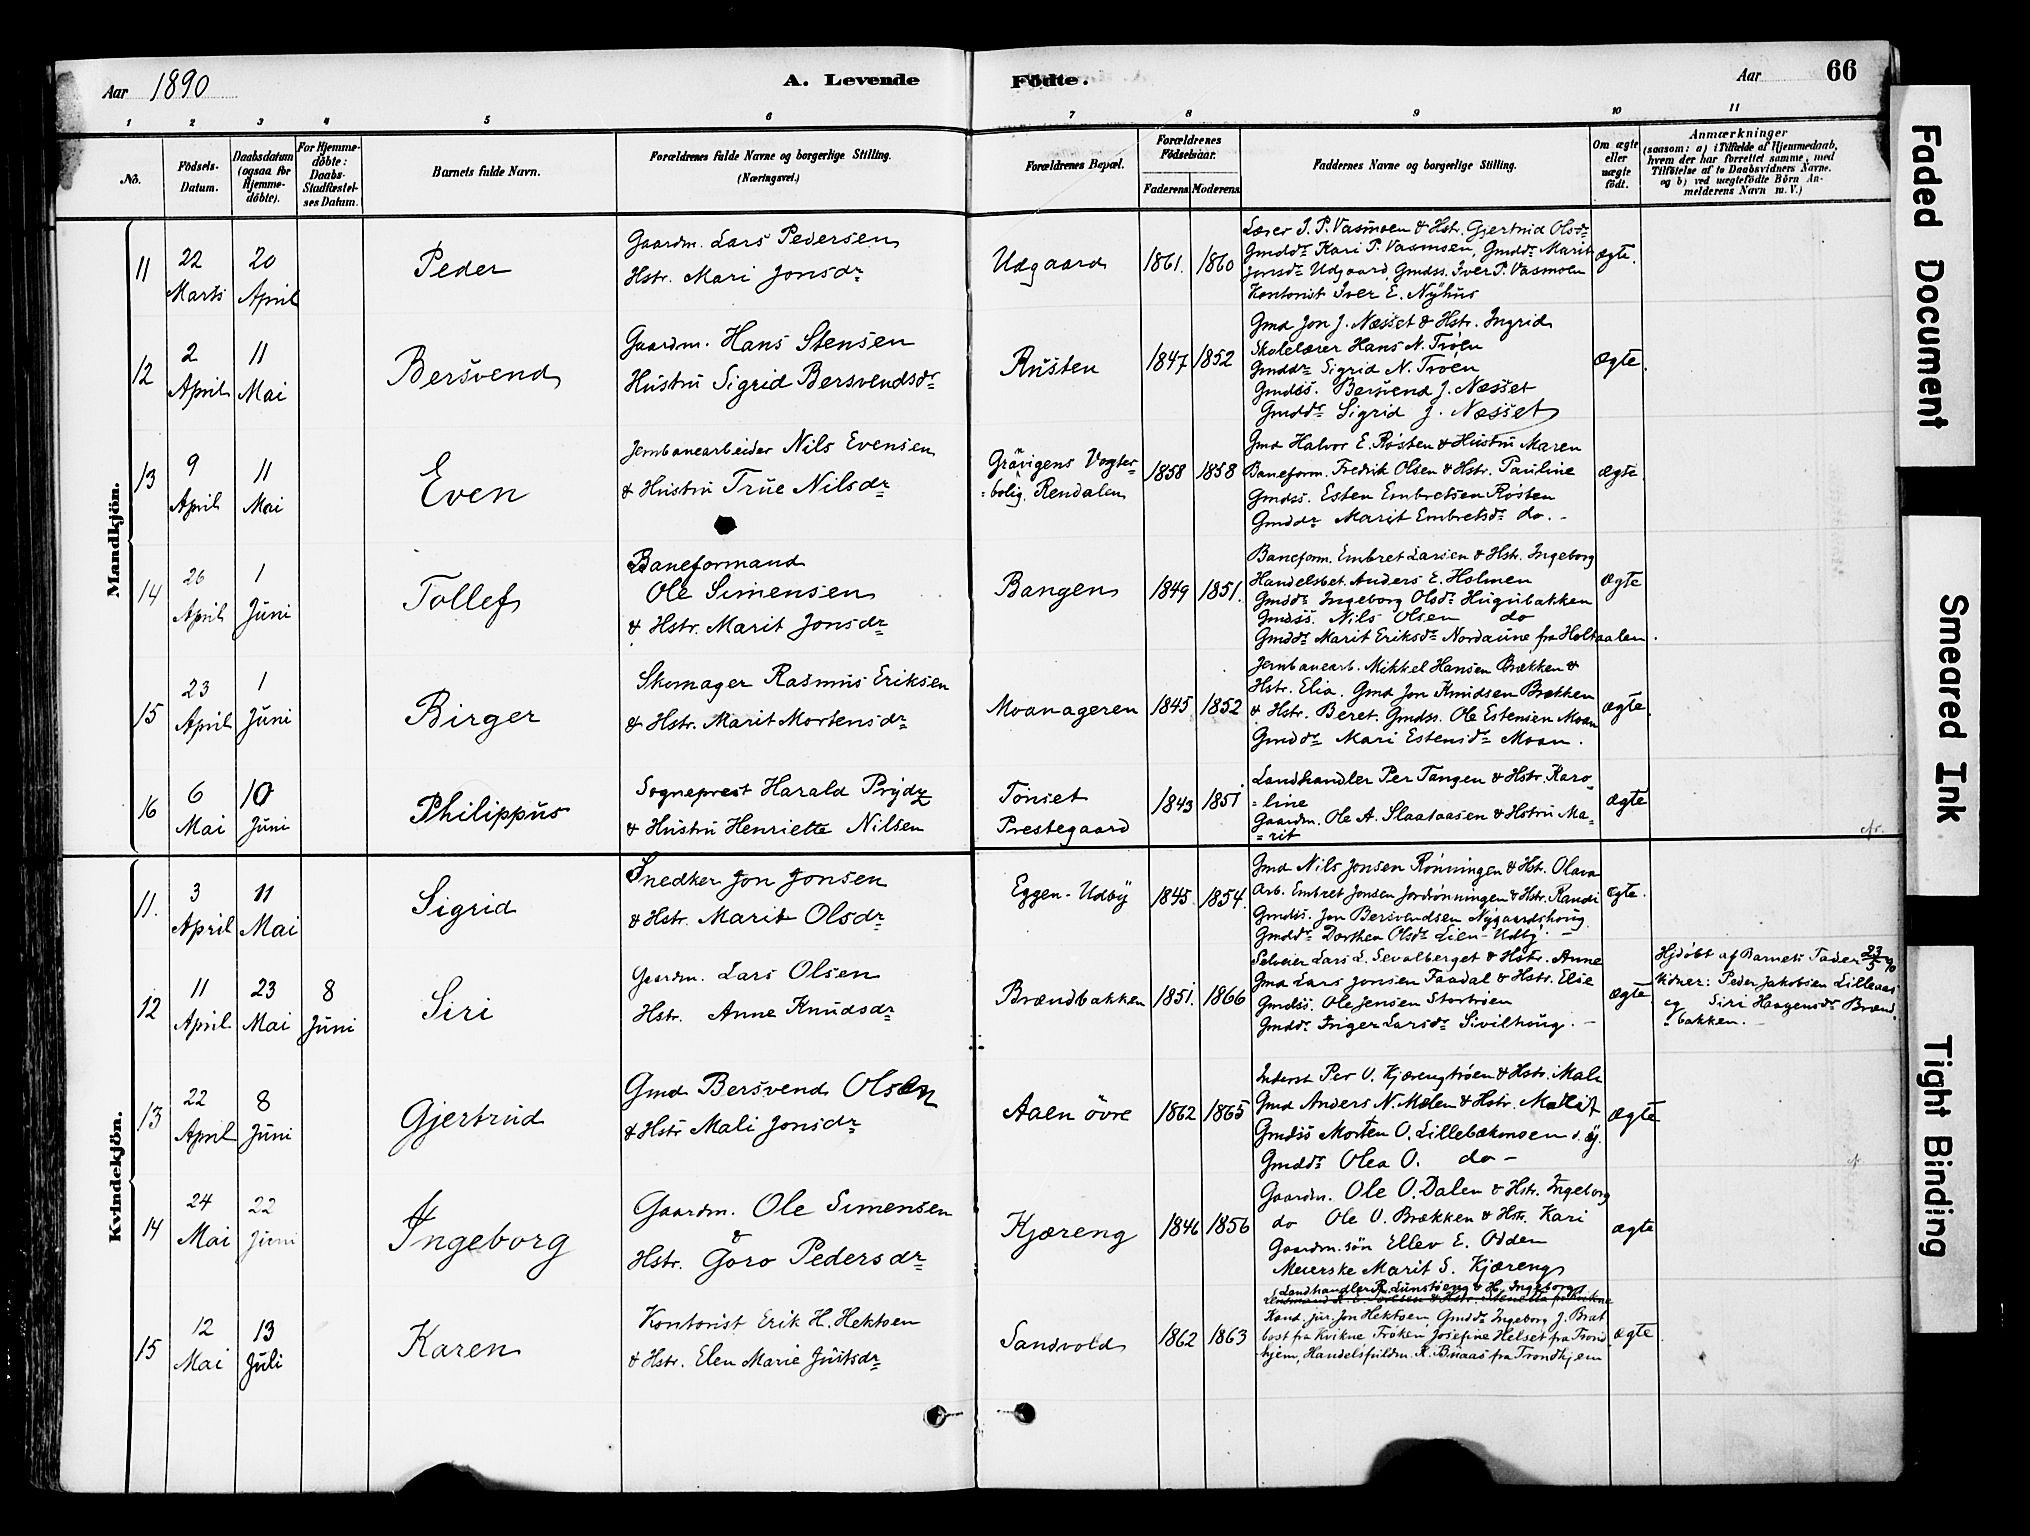 Aar 1890
A. Levende
Födte.
Aar
66
1 2 3 4 5 6 7 8 9 10 11
No.
Födsels-Datum.
Daabsdatum (ogsaa for Hjemme-döbte).
For Hjemme-döbte: Daabs-Stadfæstel-ses Datum.
Barnets fulde Navn.
Forældrenes fulde Navne og borgerlige Stilling.
(Næringsvei.)
Forældrenes Bopæl.
Forældrenes Födselsaar.
Faderens Moderens
Faddernes Navne og borgerlige Stilling.
Om ægte eller uægte födt.
Anmærkninger
(saasom: a) i Tilfælde af Hjemmedaab,
hvem der har forrettet samme, med
Tilföielse af to Daabsvidners Navne.
og b) ved uægtefödte Börn An-
melderens Navn m. V.)
Mandkjön.
11
22 Marts
20 April
Peder
Gaardm. Lars Pedersen
Hstr. Mari Jonsdr
Udgaard
1861. 1860
Lærer I. P. Vasmoen & Hstr. Gjertrud Olsdr
Gmddr Kari P. Vasmoen, Gmddr Marit
Jonsdr Udgaard, Gmdss. Iver P. Vasmoen
Kontorist Iver E. Nyhus
ægte.
12
2 April
11 Mai
Bersvend
Gaardm. Hans Stensen
Hustru Sigrid Bersvendsdr
Rusten
1847 1852
Gmd Jon J. Næsset & Hstr. Ingrid
Skolelærer Hans N. Trøen
Gmddr Sigrid N. Trøen
Gmdss. Bersvend J. Næsset
Gmddr Sigrid J. Næsset
ægte.
13
9 April
11 Mai
Even
Jernbanearbeider Nils Evensen
& Hustru True Nilsdr
Grøvigens Vogter-
bolig, Rendalen
1858 1858
Gmd Halvor E. Røsten & Hustru Maren
Baneform. Fredrik Olsen & Hstr. Pauline
Gmdss. Esten Embretsen Røsten
Gmddr Marit Embretsdr do.
ægte.
14
26 April
1 Juni
Tollef
Baneformand
Ole Simensen
& Hstr. Marit Jonsdr
Bangen
1849 1851.
Baneform. Embret Larsen & Hstr. Ingeborg
Handelsbet. Anders E. Holmen
Gmddr Ingeborg Olsdr Hugubakken
Gmdss. Nils Olsen do
Gmddr Marit Eriksdr Nordaune fra Holtaalen.
ægte
15
23 April
1 Juni
Birger
Skomager Rasmus Eriksen
& Hstr. Marit Mortensdr
Moanageren
1845 1852
Jernbanearb. Mikkel Hansen Brækken &
Hstr. Elia. Gmd Jon Knudsen Brækken
& Hstr. Beret. Gmdss. Ole Estensen Moan
Gmddr Mari Estensdr Moan.
ægte.
16
6 Mai
10 Juni
Philippus
Sogneprest Harald Prydz
& Hustru Henriette Nilsen
Tönset
Prestegaard
1843 1851
Landhandler Per Tangen & Hstr. Karo-
line
Gaardm. Ole A. Slaataasen & Hstru Ma-
rit
ægte
Kvindekjön.
11.
3 April
11 Mai
Sigrid
Snedker Jon Jonsen
& Hstr. Marit Olsdr
Eggen-Udby
1845. 1854.
Gmd Nils Jonsen Rønningen & Hst. Olava
Arb. Embret Jonsen Jordrønningen & Hstr. Randi
Gmdss. Jon Bersvendsen Nygaardshoug
Gmddr Dorthea Olsdr Lien-Udby.
ægte.
12
11 April
23 Mai
8 Juni
Siri
Gaardm. Lars Olsen
Hstr. Anne Knudsdr
Brændbakken
1851. 1866
Selveier Lars L. Sevalberget & Hstr. Anne
Gmd Lars Jonsen Faadal & Hstr. Elie
Gmdss. Ole Jensen Stortrøen
Gmddr Inger Larsdr Sivilhoug.
ægte
Hjdöbt af Barnets Fader 23/5 90
Vidner: Peder Jakobsen Lilleaas
og Siri Haagensdr Brænd-
bakken.
13
22 April
8 Juni
Gjertrud
Gmd Bersvend Olsen
& Hstr Mali Jonsdr
Aaen övre
1862 1865
Inderst Per O. Kjærengtrøen & Hstr. Mali
Gmd Anders N. Moen & Hstr. Marit
Gmdss Morten O. Lillebækmoen
Gmddr Olea O. do
ægte
14
24 Mai
22 Juni
Ingeborg
Gaardm. Ole Simensen
&
Hstr. Goro Pedersdr
Kjæreng
1846 1856
Gaardm. Ole O. Dalen & Hstr. Ingeborg
do Ole O. Brækken & Hstr. Kari
Gaardm.søn Ellev E. Odden
Meierske Marit S. Kjæreng
ægte
15
12 Mai
13 Juli
Karen
Kontorist Erik H. Hektoen
& Hstr. Elen Marie Justsdr
Sandvold
1862 1863
Landhandler R. Lunstøeng & H. Ingeborg
Kand. jur. Jon Hektoen Gmddr Ingeborg J. Bræt
bost fra Kvikne Frøken Josefine Helset fra Trond
hjem, Handelsfuldm. K. Buaas fra Trondhjem
ægte.
Faded Document
Smeared Ink
Tight Binding